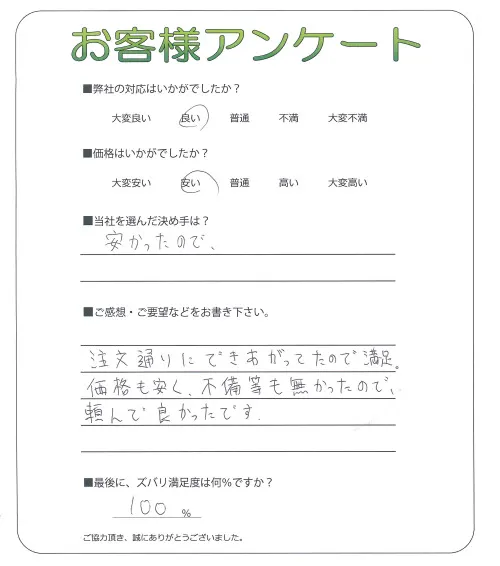 お客様アンケート
■弊社の対応はいかがでしたか?
大変良い 良い 普通 不満 大変不満
■価格はいかがでしたか?
大変安い 安い 普通 高い 大変高い
■当社を選んだ決め手は?
安かったので、
■ご感想・ご要望などをお書き下さい。
注文通りにできあがってたので満足。
価格も安く、不備等も無かったので、
頼んで良かったです.
■最後に、ズバリ満足度は何%ですか?
100 %
ご協力頂き、誠にありがとうございました。